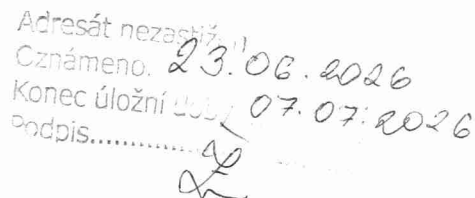 Adresát nezastiž.
Oznámeno. 23.06.2026
Konec úložní doby 07.07.2026
Podpis..............